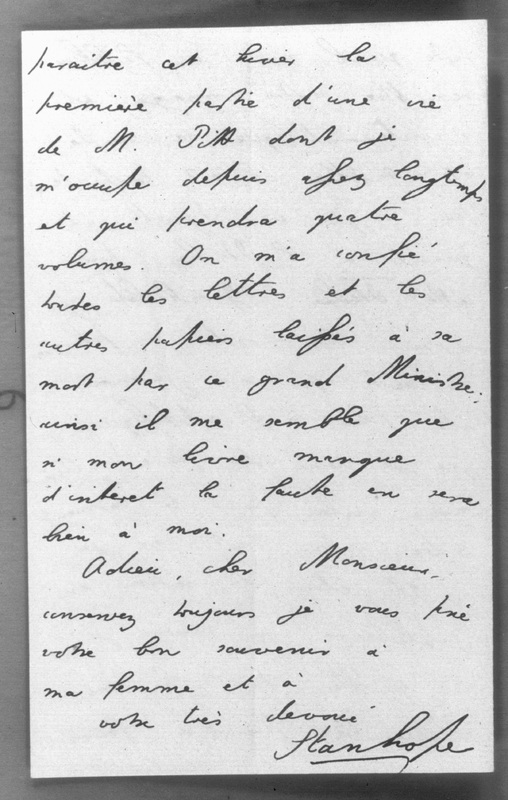 paraitre cet hiver la
première partie d'une vie
de M. Pitt dont je
m'occupe depuis assez longtemps
et qui prendra quatre
volumes. On m'a confié
toutes les lettres et les
autres papiers laissés à sa
mort par ce grand Ministre;
ainsi il me semble que
si mon livre manque
d'interet la faute en sera
bien à moi.
Adieu, cher Monsieur,
conservez toujours je vous prie
votre bon souvenir à
ma femme et à
votre très devoué
Stanhope